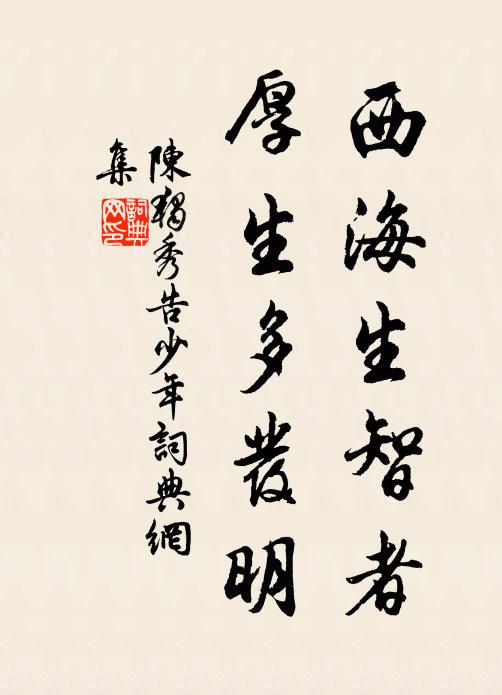 西海生智者
厚生多發明
陳獨秀告少年詞典網
集
詞典
网印